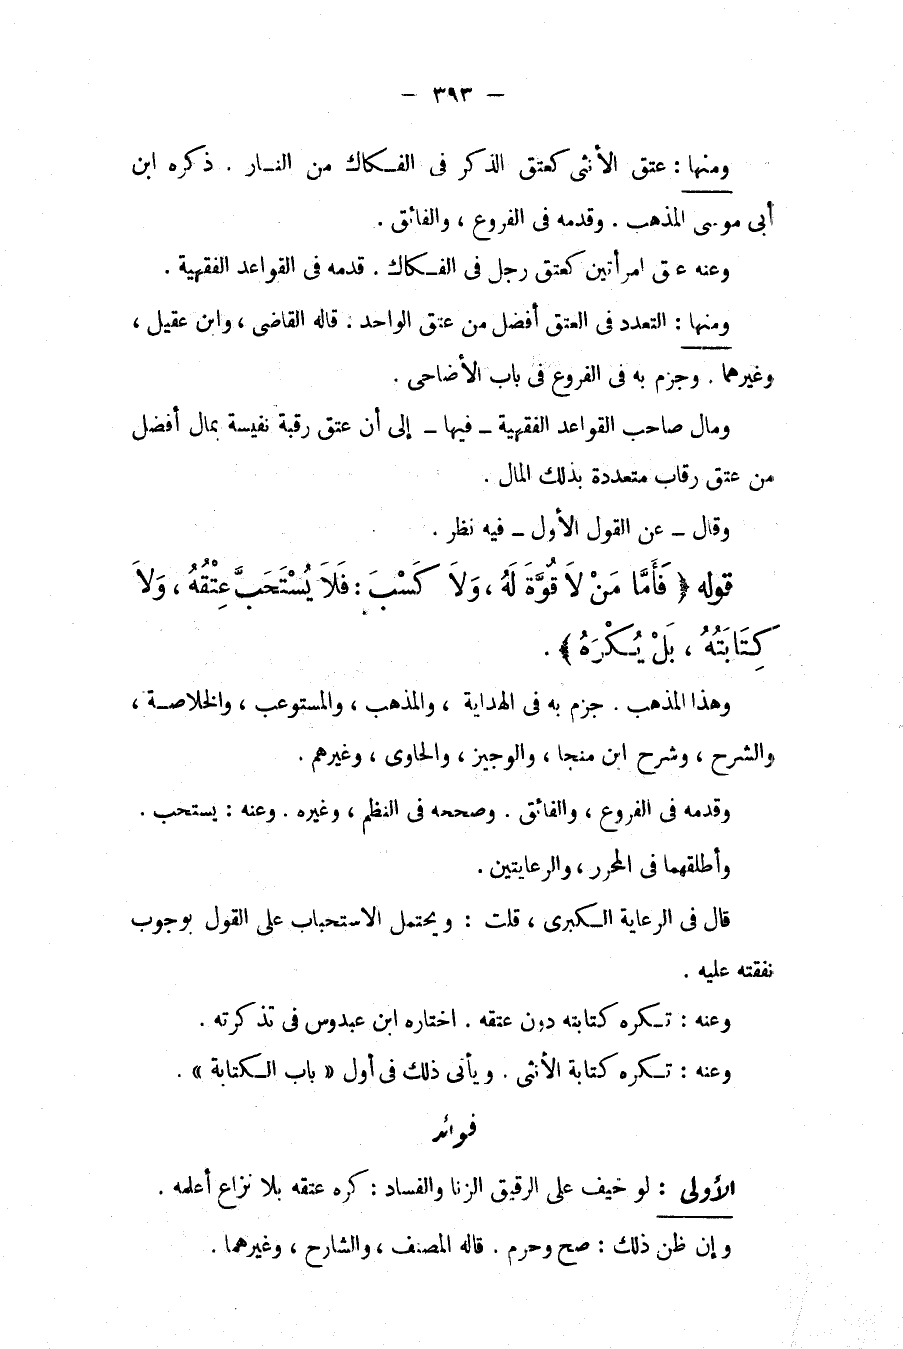 — ٣٩٣ —
ومنها : عتق الأنثى كعتق الذكر فى الفكاك من النار . ذكره ابن
أبى موسى المذهب . وقدمه فى الفروع ، والفائق .
وعنه عتق امرأتين كعتق رجل فى الفكاك . قدمه فى القواعد الفقهية .
ومنها : التعدد فى العتق أفضل من عتق الواحد . قاله القاضى ، وابن عقيل ،
وغيرهما . وجزم به فى الفروع فى باب الأضاحى .
ومال صاحب القواعد الفقهية – فيها – إلى أن عتق رقبة نفيسة بمال أفضل
من عتق رقاب متعددة بذلك المال .
وقال – عن القول الأول – فيه نظر .
قوله ﴿ فَأَمَّا مَنْ لاَ قُوَّةَ لَهُ ، وَلاَ كَسْبَ : فَلاَ يُسْتَحَبُّ عِتْقُهُ ، وَلاَ
كِتَابَتُهُ ، بَلْ يُكْرَهُ ﴾ .
وهذا المذهب . جزم به فى الهداية ، والمذهب ، والمستوعب ، والخلاصة ،
والشرح ، وشرح ابن منجا ، والوجيز ، والحاوى ، وغيرهم .
وقدمه فى الفروع ، والفائق . وصححه فى النظم ، وغيره . وعنه : يستحب .
وأطلقهما فى المحرر ، والرعايتين .
قال فى الرعاية الكبرى ، قلت : ويحتمل الاستحباب على القول بوجوب
نفقته عليه .
وعنه : تكره كتابته دون عتقه . اختاره ابن عبدوس فى تذكرته .
وعنه : تكره كتابة الأنثى . ويأتى ذلك فى أول « باب الكتابة » .
فوائد
الأولى : لو خيف على الرقيق الزنا والفساد : كره عتقه بلا نزاع أعلمه .
وإن ظن ذلك : صح وحرم . قاله المصنف ، والشارح ، وغيرهما .